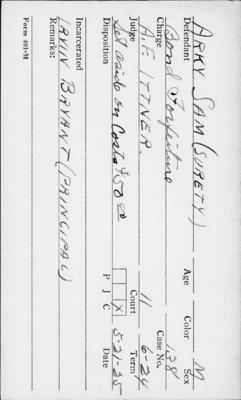 ARKY SAM (SURETY) M
Defendant Age Color Sex
Bond Forfeiture 138
Charge Case No.
A.F. ITTNER. 11 6-24
Judge Court Term
set aside on Costs $50 X 5-21-25
Disposition P J C Date
Incarcerated
IRVIN BRYANT (PRINCIPAL)
Remarks:
Form 401-M